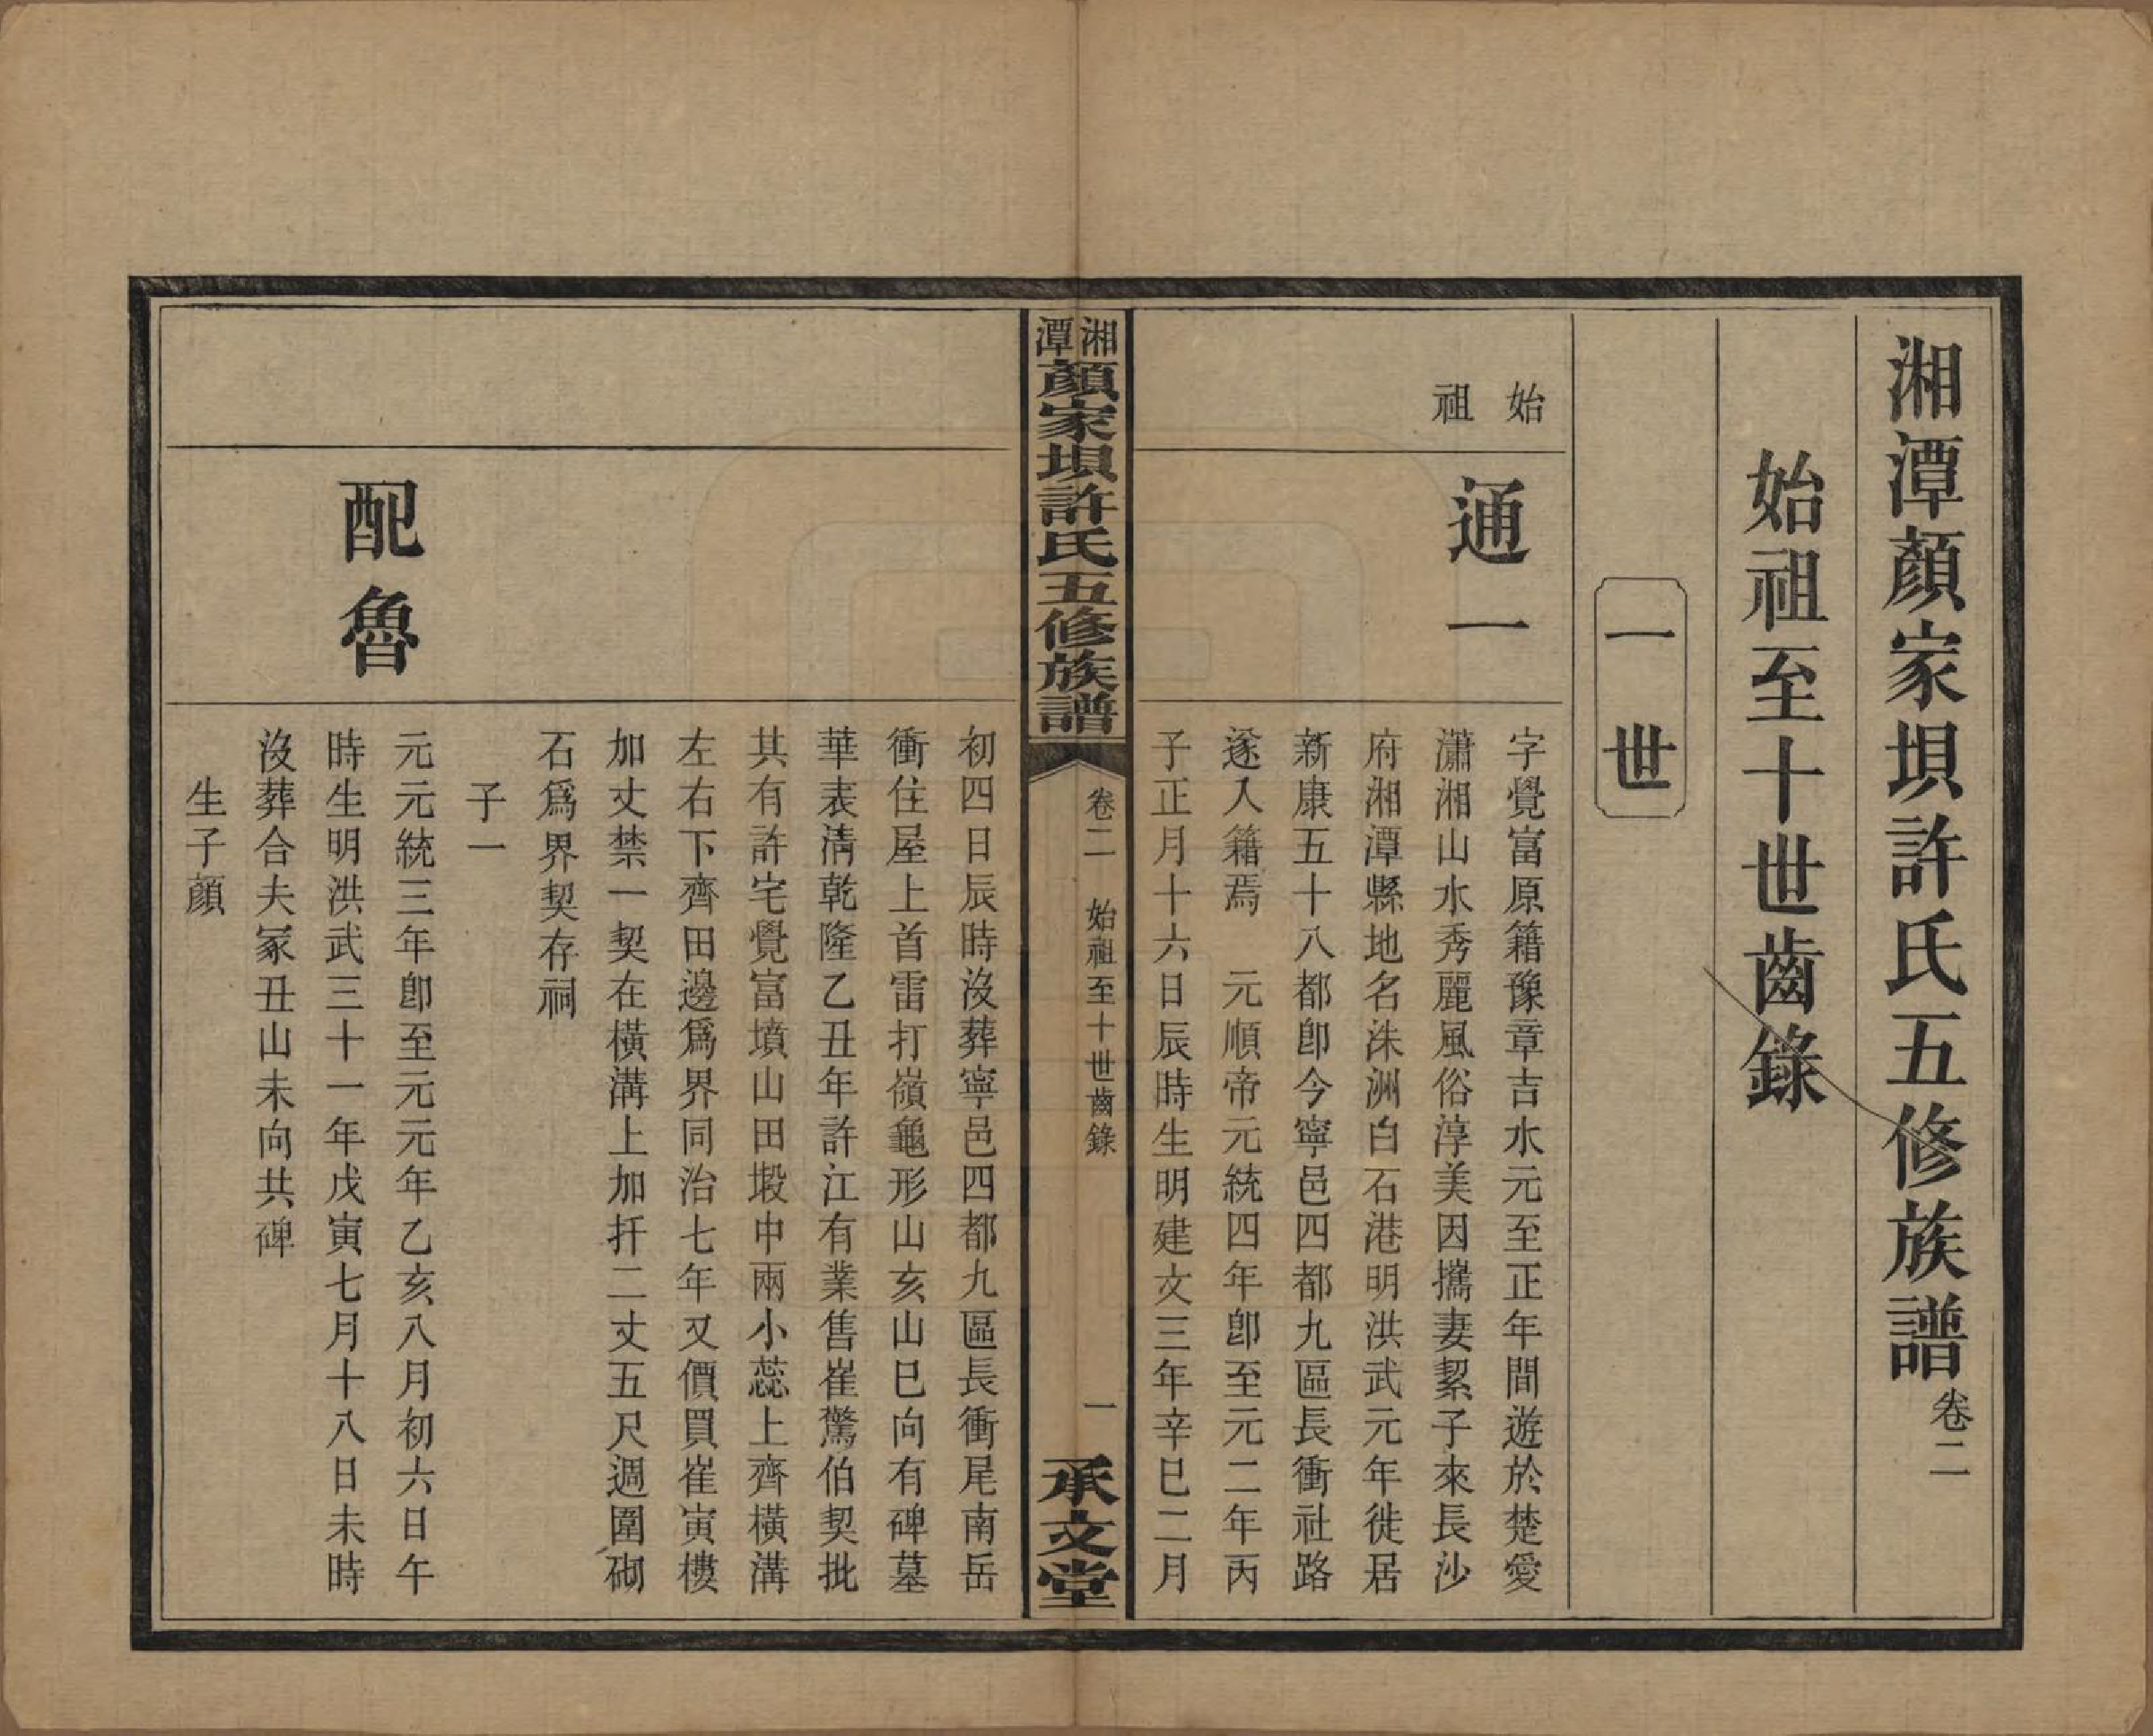 湘潭顏家壩許氏五修族譜卷二
始祖至十世齒錄
一世
始祖
通一
字覺富原籍豫章吉水元至正年間遊於楚愛
瀟湘山水秀麗風俗淳美因攜妻絜子來長沙
府湘潭縣地名洙洲白石港明洪武元年徙居
新康五十八都卽今寧邑四都九區長衝社路
遂入籍焉　元順帝元統四年卽至元二年丙
子正月十六日辰時生明建文三年辛巳二月
湘潭顏家垻許氏五修族譜
卷二　始祖至十世齒錄
一
承文堂
初四日辰時沒葬寧邑四都九區長衝尾南岳
衝住屋上首雷打嶺龜形山亥山巳向有碑墓
華表清乾隆乙丑年許江有業售崔驚伯契批
其有許宅覺富墳山田塅中兩小蕊上齊橫溝
左右下齊田邊爲界同治七年又價買崔寅樓
加丈禁一契在橫溝上加扦二丈五尺週圍砌
石爲界契存祠
子一
配魯
元元統三年卽至元元年乙亥八月初六日午
時生明洪武三十一年戊寅七月十八日未時
沒葬合夫冢丑山未向共碑
生子顏